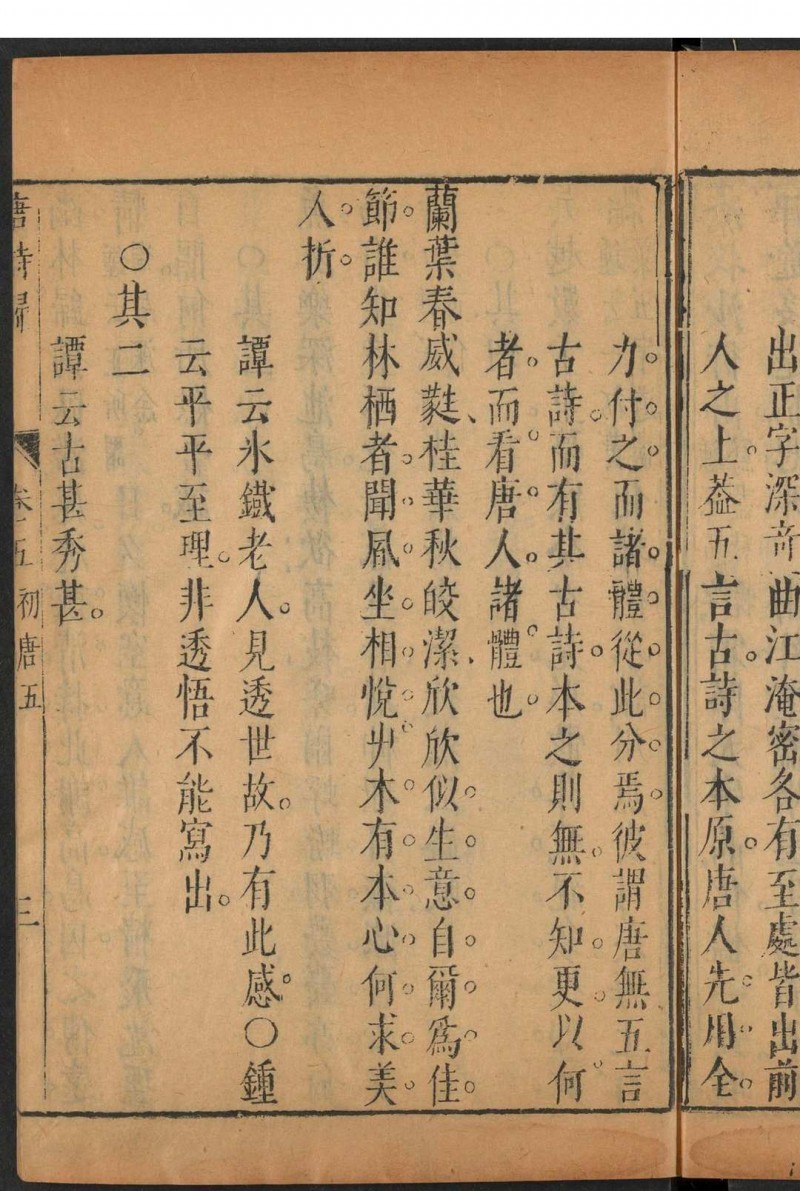 出正字深奇曲江淹密各有至處皆出前
人之上。葢五言古。詩之本原。唐人先。用。全。
力。付。之。而諸。體。從。此。分。焉。彼謂唐無五言
古詩。而有其古詩。本之則無。不知。更。以何。
者。而看。唐。人。諸體。也。
蘭葉春葳蕤、桂華秋皎潔、欣欣似。生。意。自。爾。為。佳。
節。誰知林栖者。聞。風。坐。相。悅。艸。木。有。本。心。何。求。美。
人。折。
譚云氷鐵老人。見透世故。乃有此感。○鍾
云平平至理。非透悟不能寫出。
○其二
譚云古甚秀甚。
唐詩歸 卷五 初唐五 三